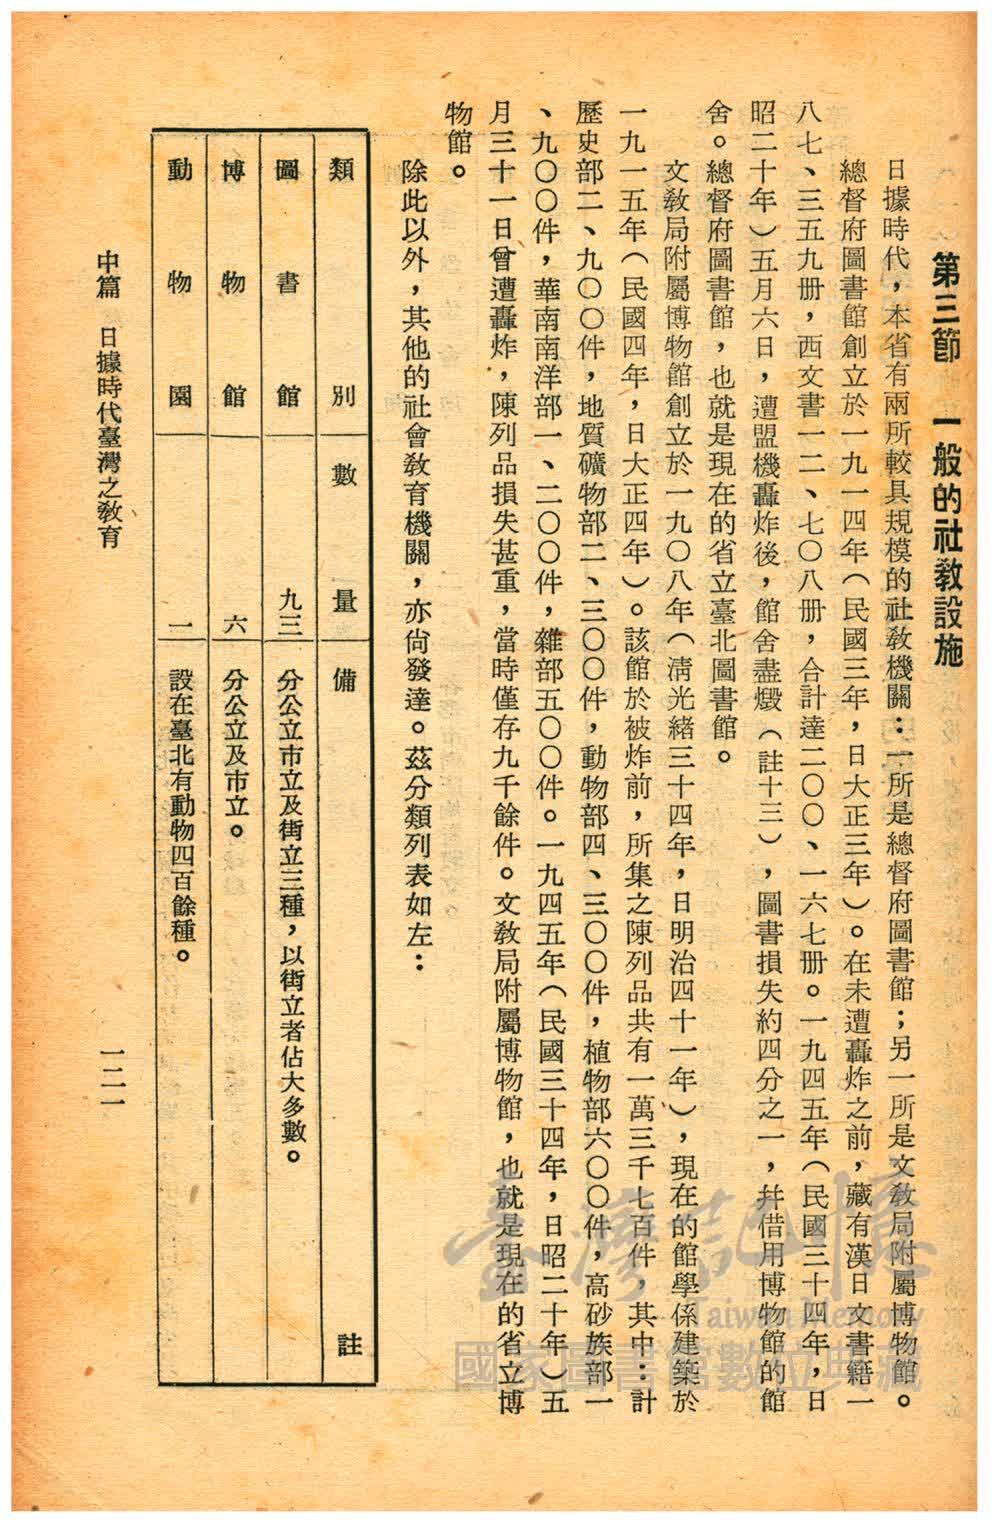 第三節　一般的社教設施
日據時代，本省有兩所較具規模的社教機關：一所是總督府圖書館；另一所是文教局附屬博物館。
總督府圖書館創立於一九一四年（民國三年，日大正三年）。在未遭轟炸之前，藏有漢日文書籍一
八七、三五九册，西文書一二、七〇八册，合計達二〇〇、一六七册。一九四五年（民國三十四年，日
昭二十年）五月六日，遭盟機轟炸後，館舍盡燬（註十三），圖書損失約四分之一，幷借用博物館的館
舍。總督府圖書館，也就是現在的省立臺北圖書館。
文教局附屬博物館創立於一九〇八年（清光緒三十四年，日明治四十一年），現在的館學係建築於
一九一五年（民國四年，日大正四年）。該館於被炸前，所集之陳列品共有一萬三千七百件，其中：計
歷史部二、九〇〇件，地質礦物部二、三〇〇件，動物部四、三〇〇件，植物部六〇〇件，高砂族部一
、九〇〇件，華南南洋部一、二〇〇件，雜部五〇〇件。一九四五年（民國三十四年，日昭二十年）五
月三十一日曾遭轟炸，陳列品損失甚重，當時僅存九千餘件。文教局附屬博物館，也就是現在的省立博
物館。
除此以外，其他的社會教育機關，亦尙發達。茲分類列表如左：
類別　數量　備註
圖書館　九三　分公立市立及街立三種，以街立者佔大多數。
博物館　六　分公立及市立。
動物園　一　設在臺北有動物四百餘種。
中篇　日據時代臺灣之教育
一二一
臺灣記憶
Taiwan Memory
國家圖書館數位典藏